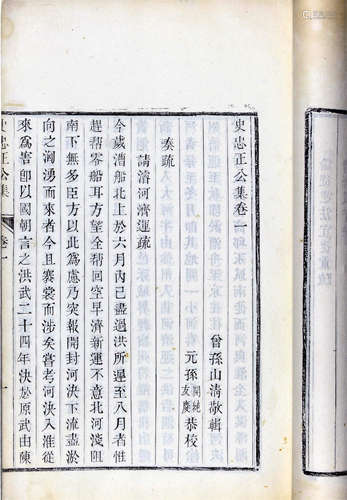 史忠正公集卷一
曾孫山清敬輯
元孫開純友慶恭校
奏疏
請濬河濟運疏
今歲漕船北上於六月內已盡過洪所遲至八月者惟
趕精零船耳方望全精回空早濟新運不意北河淺阻
南下無多臣方以此為慮乃突報開封河決下流盡淤
向之洶湧而來者今且褰裳而涉矣嘗考河決入淮從
來為害即以國朝言之洪武二十四年決於原武由陳
史忠正公集
卷一
一